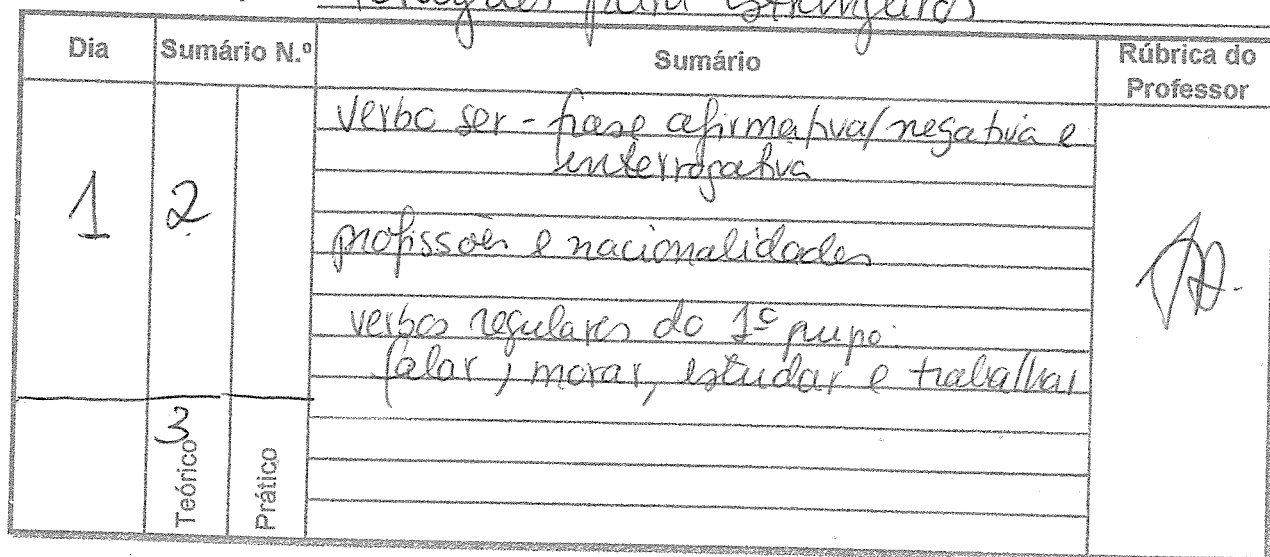 Português para Estrangeiros
Dia
Sumário N.º
Sumário
Rúbrica do
Professor
1
2
verbo ser - frase afirmativa/negativa e
interrogativa
profissões e nacionalidades
verbos regulares do 1º grupo:
falar, morar, estudar e trabalhar
3
Teórico
Prático